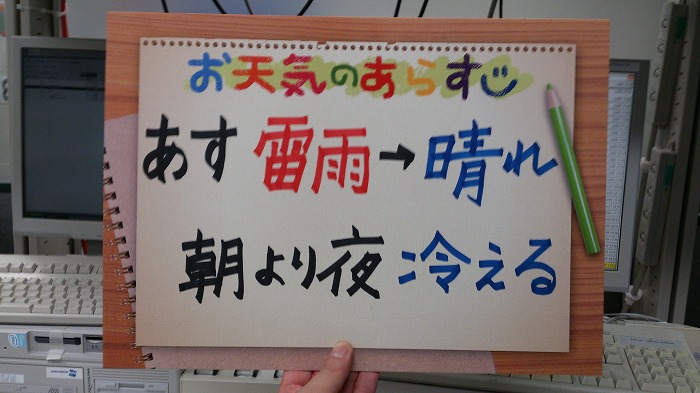 お天気のあらすじ
あす 雷雨→晴れ
朝より夜 冷える